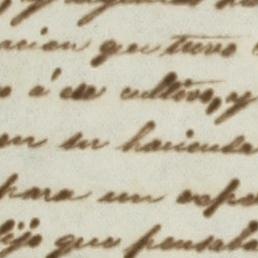 acion que tuvo
o á ese cultivo, y
en su hacienda
para un espe
dijo que pensaba